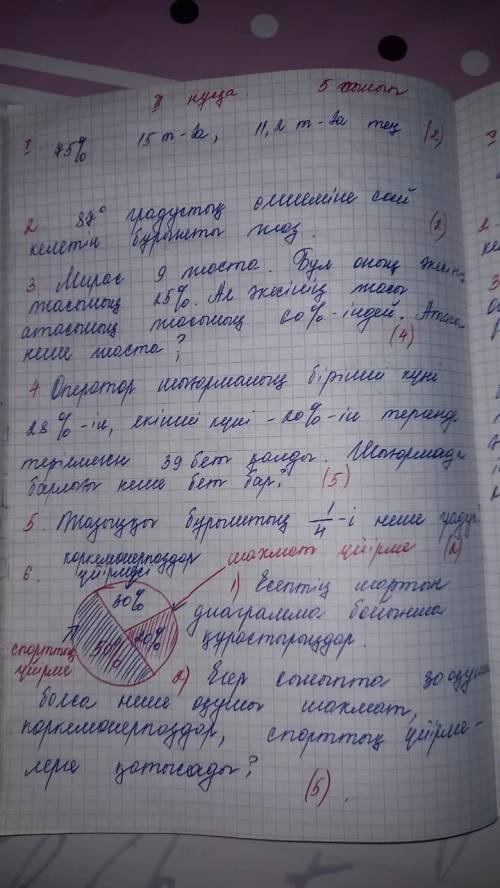 II нұсқа 5 сынып
1. 75% 15 т-ға, 11,2 т-ға тең (2)
2. 87° градустық өлшеміне сай (2)
келетін бұрышты жаз.
3. Мирас 9 жаста. Бұл оның әкесі
жасының 25%. Ал әкесінің жасы
атасының жасының 60%-індей. Атасы
неше жаста? (4)
4 Оператор шығарманың бірінші күні
28%-ін, екінші күні - 20%-ін терген
терілмеген 39 бет қалды. Шығармада
барлығы неше бет бар? (5)
5. Жазыңқы бұрыштың 1/4-і неше граду
көркемөнерпаздар шахмат үйірме (2)
6. үйірмесі 1) Есептің шартын
30% диаграмма бойынша
50% 20% құрастырыңдар.
спорттық үйірме 2) Егер сыныпта 30 оқушы
болса неше оқушы шахмат,
көркемөнерпаздар, спорттық үйірме-
лерге қатысады?
(5).